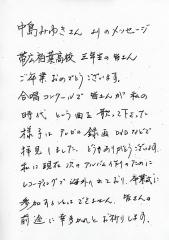 中島みゆきさん よりのメッセージ
帯広柏葉高校 三年生の皆さん
ご卒業おめでとうございます。
合唱コンクールで 皆さんが 私の
時代 という曲を 歌って下さった
様子は テレビの録画 DVDなどで
拝見しました。どうもありがとうございます。
私は現在 次のアルバム作りのために
レコーディングで 海外に出ており、卒業式に
参加することはできませんが、皆さんの
前途に 幸多かれと お祈りします。